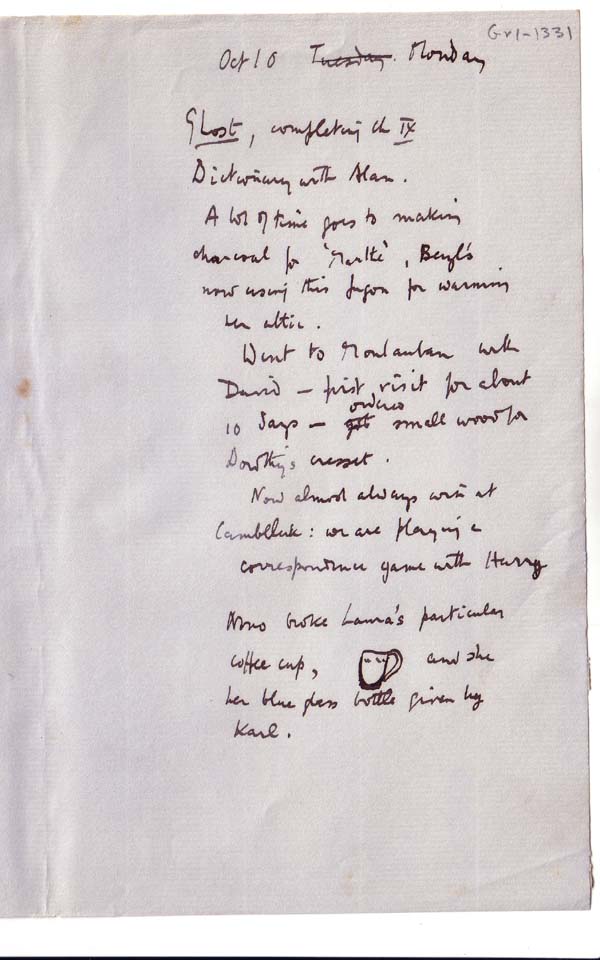 Gv1-1331
Oct 10 Tuesday. Monday
Ghost, completing ch IX
Dictionary with Alan.
A lot of time goes to making
charcoal for 'Marthe', Beryl's
now using this fugon for warming
her attic.
Went to Montauban with
David – first visit for about
10 days – got ordered small wood for
Dorothy's cresset.
Now almost always win at
: we are playing a
correspondence game with Harry
Nono broke Laura's particular
coffee cup, and she
her blue glass bottle given by
Karl.